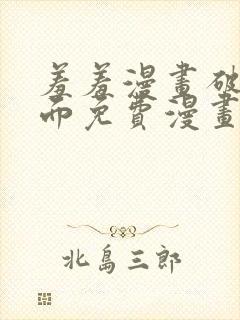 羞羞漫畫破
而免費漫畫
北島三郎